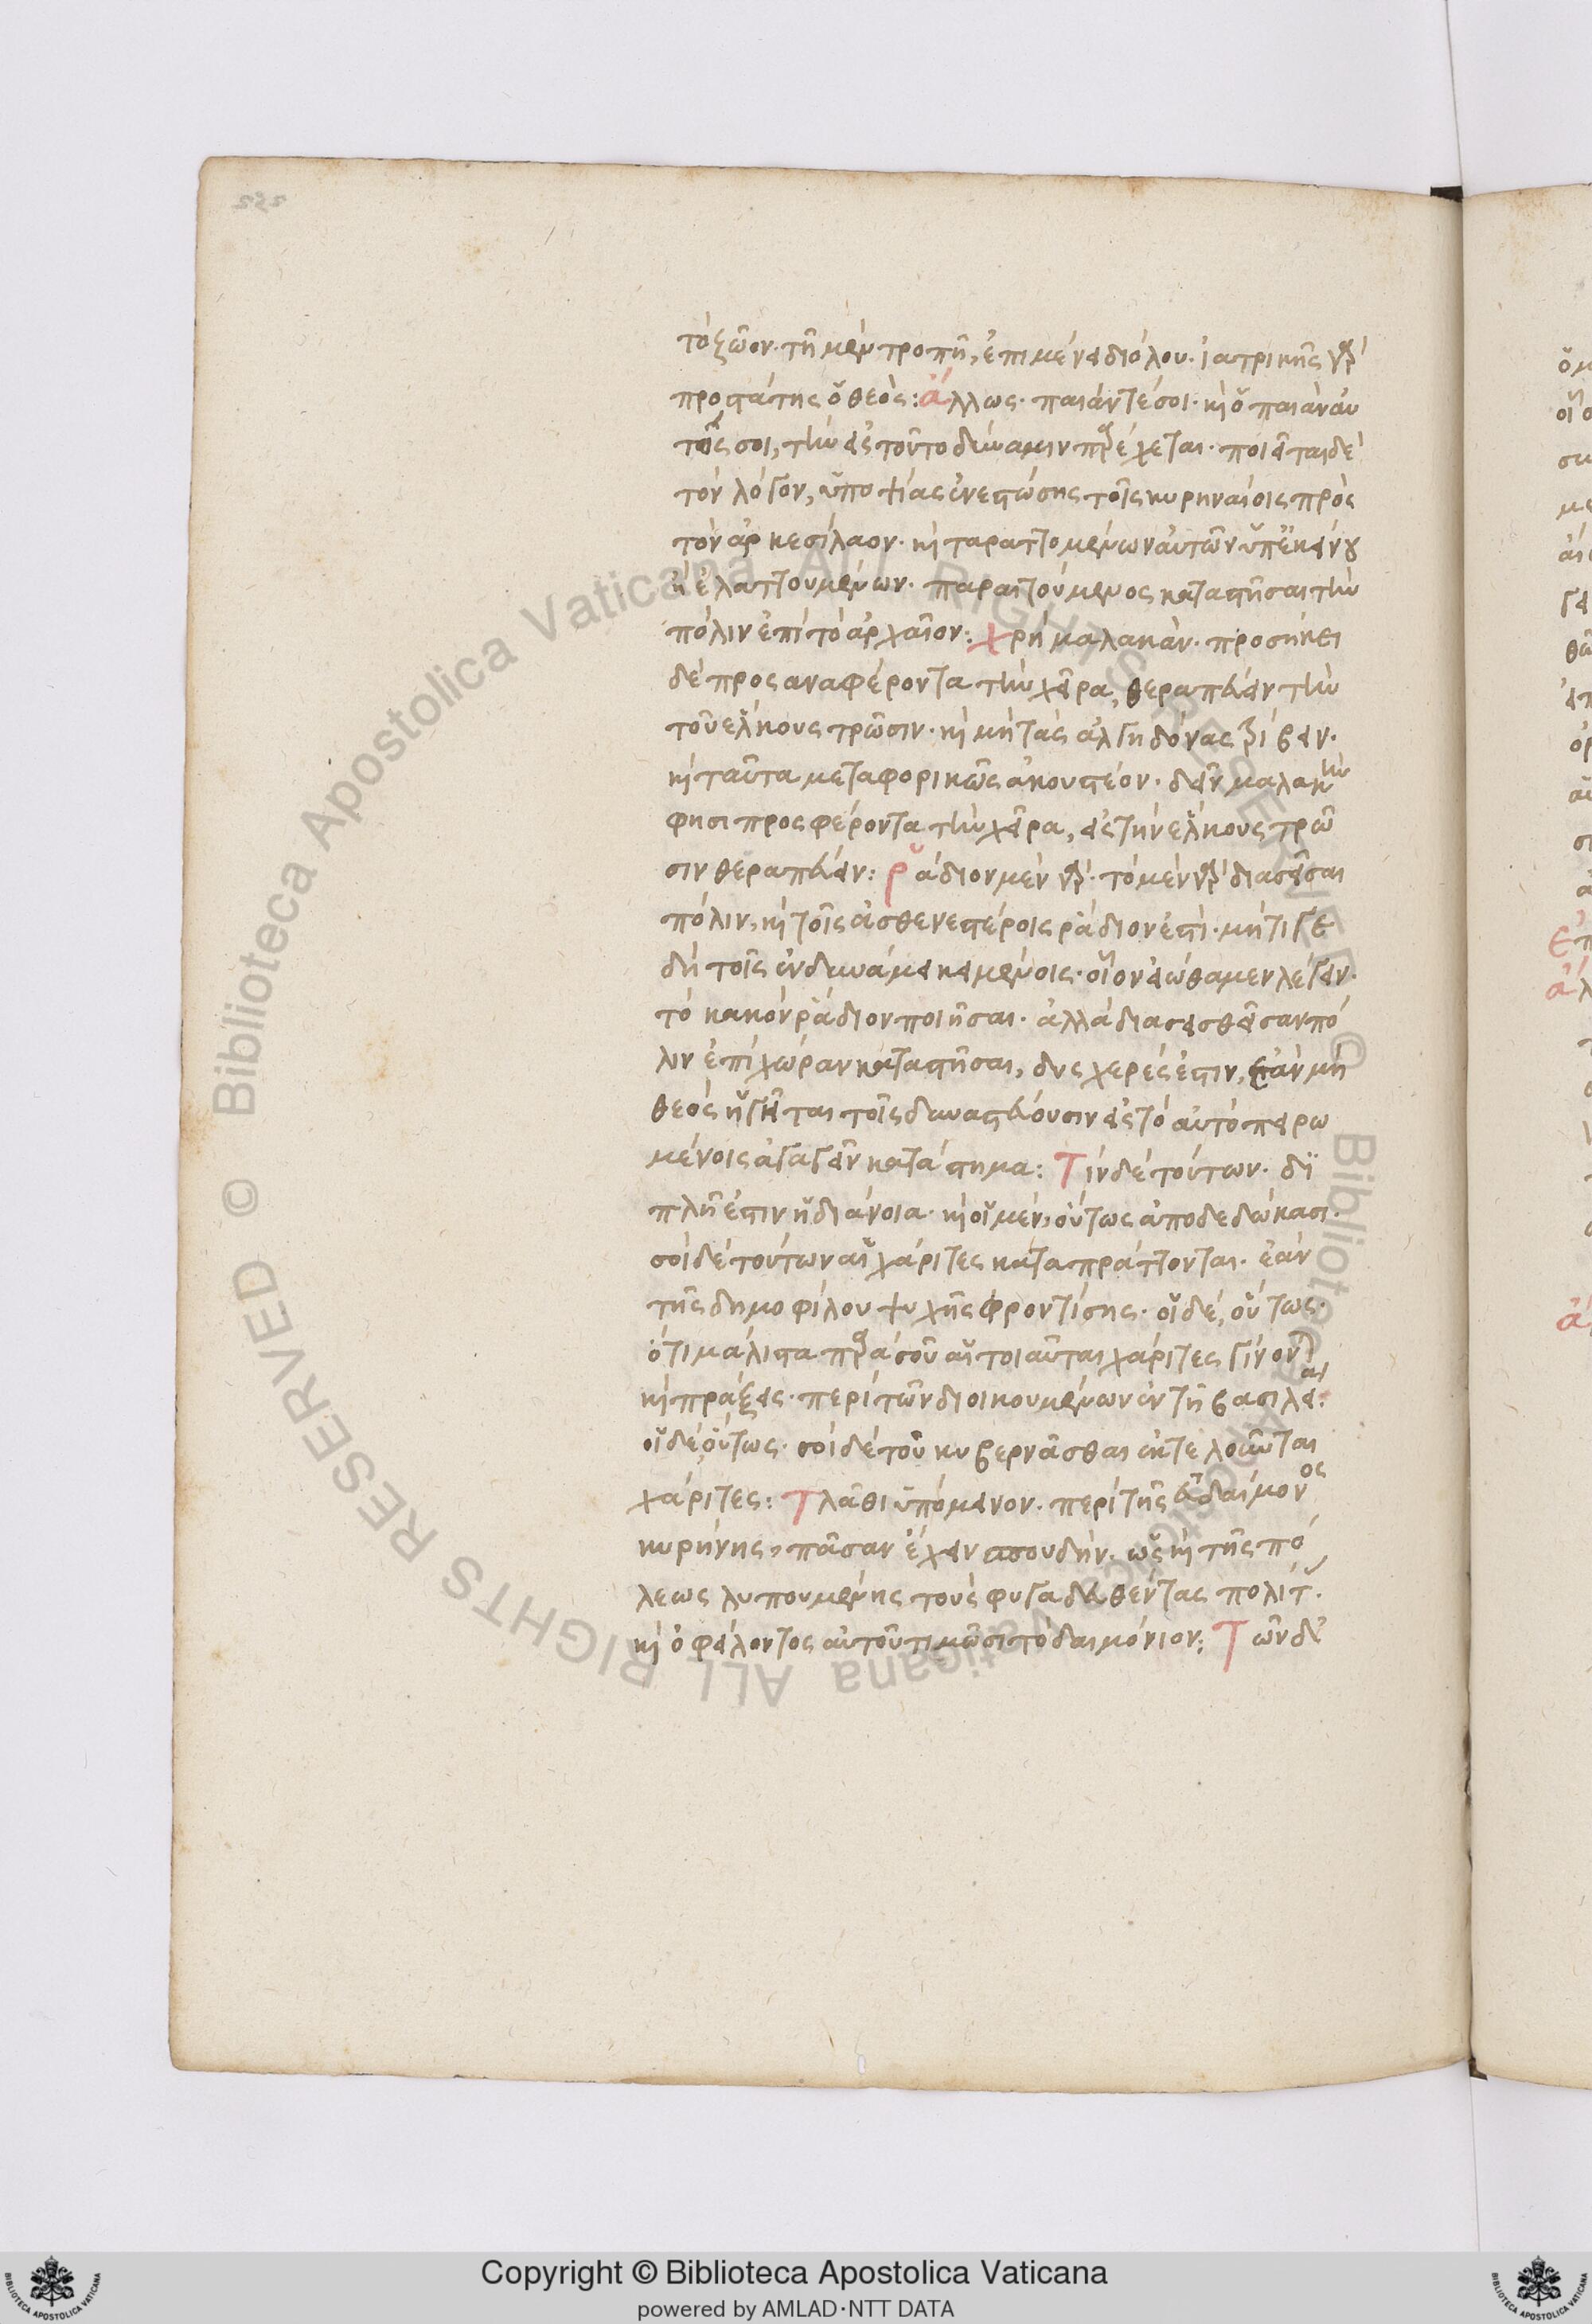 τὸ ζῶον. τῇ μὲν τροπῇ, ἐπιμένει διόλου. ἰατρικῆς γὰρ
προστάτης ὁ θεός: ἄλλως. παιάν τέ σοι. καὶ ὁ παιὰν αὐ
τός σοι, τὴν εἰς τοῦτο δύναμιν παρέχεται. ποιεῖται δὲ
τὸν λόγον, ὑποψίας ἐνεστώσης τοῖς κυρηναίοις πρὸς
τὸν ἀρκεσίλαον. καὶ ταραττομένων αὐτῶν ὑπ' ἐκείνου
ἢ ἐλαττουμένων. παραιτούμενος καταστῆσαι τὴν
πόλιν ἐπὶ τὸ ἀρχαῖον: χρὴ μαλακάν. προσήκει
δὲ προσαναφέροντα τὴν χεῖρα, θεραπεύειν τὴν
τοῦ ἕλκους τρῶσιν. καὶ μὴ τὰς ἀλγηδόνας τρίβειν.
καὶ ταῦτα μεταφορικῶς ἀκουστέον. δεῖν μαλακὴν
φησι προσφέροντα τὴν χεῖρα, εἰς τὴν ἕλκους τρῶ
σιν θεραπεύειν: ῥάδιον μὲν γὰρ. τὸ μὲν γὰρ διασεῖσαι
πόλιν, καὶ τοῖς ἀσθενεστέροις ῥάδιον ἐστὶ. μήτιγε
δὴ τοῖς ἐν δυνάμει κειμένοις. οἷον εἰώθαμεν λέγειν.
τὸ κακὸν ῥάδιον ποιῆσαι. ἀλλὰ διασεισθεῖσαν πό
λιν ἐπὶ χώραν καταστῆσαι, δυσχερές ἐστιν, ἐὰν μὴ
θεὸς ἡγῆται τοῖς δυναστεύουσιν εἰς τὸ αὐτὸ πειρω
μένοις ἀγαγεῖν κατάστημα: Τὶν δὲ τούτων. δι
πλῆ ἐστιν ἡ διάνοια. καὶ οἱ μὲν, οὕτως ἀποδεδώκασι.
σοὶ δὲ τούτων αἱ χάριτες καταπράττονται. ἐὰν
τῆς δημοφίλου ψυχῆς φροντίσης. οἱ δὲ, οὕτως.
ὅτι μάλιστα παρὰ σοῦ αἱ τοιαῦται χάριτες γίνονται
καὶ πράξεις. περὶ τῶν διοικουμένων ἐν τῇ βασιλεί:
οἱ δὲ οὕτως. σοὶ δὲ τοῦ κυβερνᾶσθαι ἐκτελοῦνται
χάριτες: Τλᾶθι ὑπόμεινον. περὶ τῆς εὐδαίμονος
κυρήνης, πᾶσαν ἔχειν σπουδήν. ὡς καὶ τῆς πό
λεως λυπουμένης τοὺς φυγαδευθέντας πολίτ.
καὶ ὀφείλοντος αὐτοῦ τιμῶσι τὸ δαιμόνιον: Τῶν δ'
Copyright © Biblioteca Apostolica Vaticana
powered by AMLAD·NTT DATA